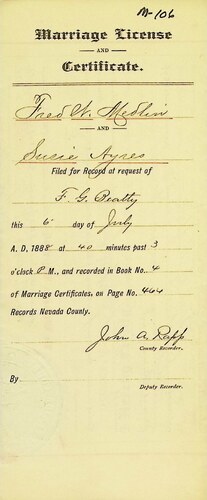 M-106
Marriage License
AND
Certificate.
Fred W. Medlin
AND
Susie Ayres
Filed for Record at request of
F G. Beatty
this 6 day of July
A. D. 1888 at 40 minutes past 3
o'clock P M., and recorded in Book No. 4
of Marriage Certificates, on Page No. 464
Records Nevada County.
John A. Rapp
County Recorder.
By
Deputy Recorder.